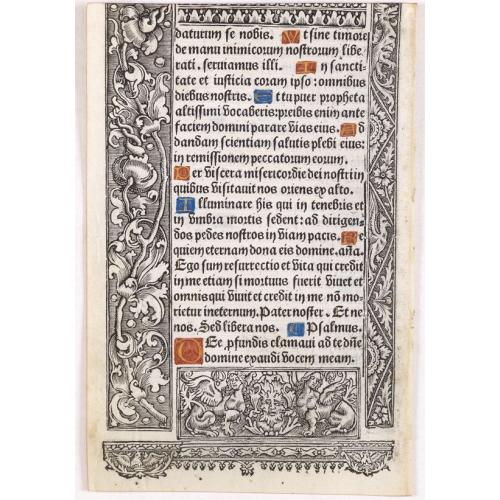 daturum se nobis. Vt sine timore
de manu inimicorum nostrorum libe
rati. seruiamus illi. In sancti-
tate et iusticia coram ipso: omnibus
diebus nostris. Et tu puer propheta
altissimi vocaberis: preibis enim ante
faciem domini parare vias eius. Ad
dandam scientiam salutis plebi eius:
in remissionem peccatorum eorum.
Per viscera misericordie dei nostri in
quibus visitauit nos oriens ex alto.
Illuminare his qui in tenebris et
in vmbra mortis sedent: ad dirigen-
dos pedes nostros in viam pacis. Re
quiem eternam dona eis domine. añа.
Ego sum resurrectio et vita qui credit
in me etiam si mortuus fuerit viuet et
omnis qui viuit et credit in me nõ mo-
rietur ineternum. Pater noster. Et ne
nos. Sed libera nos. Psalmus.
De ꝓfundis clamaui ad te dñe
domine exaudi vocem meam.